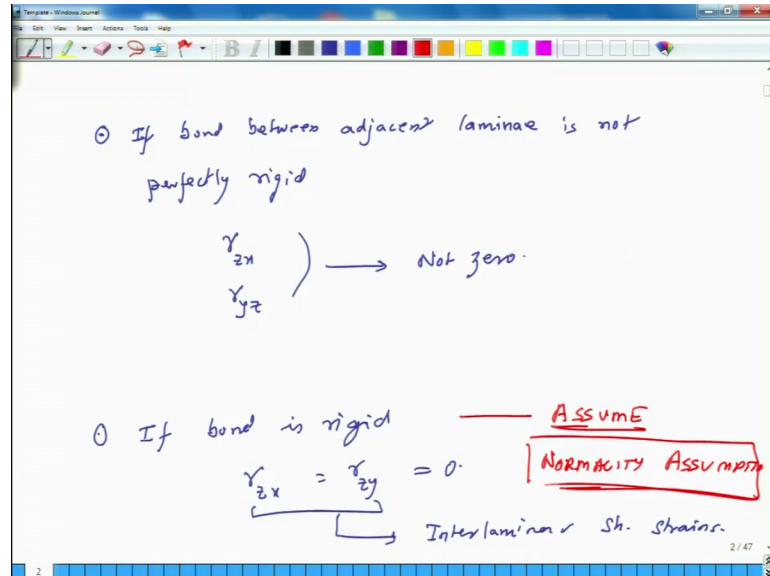 Template - Windows Journal
File Edit View Insert Actions Tools Help
B I
⊙ If bond between adjacent laminae is not
perfectly rigid
γzx
γyz ) → Not zero.
⊙ If bond is rigid — ASSUME
γzx = γzy = 0. NORMALITY ASSUMPTN
→ Interlaminar Sh. Strains.
2 / 47
2